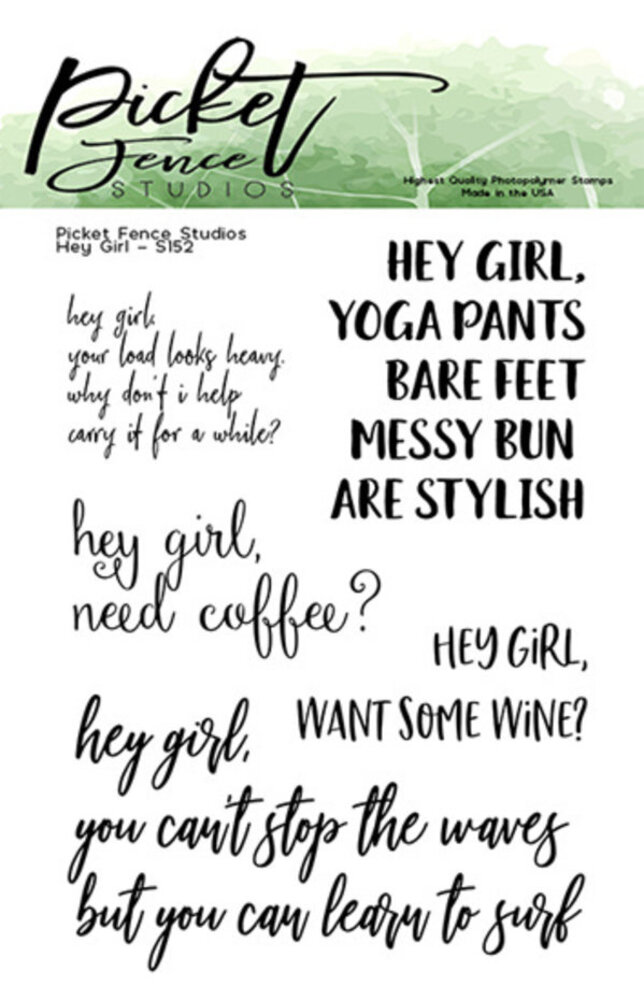 Picket
Fence
STUDIOS
Highest Quality Photopolymer Stamps
Made in the USA
Picket Fence Studios
Hey Girl - S152
hey girl,
your load looks heavy.
why don't i help
carry it for a while?
HEY GIRL,
YOGA PANTS
BARE FEET
MESSY BUN
ARE STYLISH
hey girl,
need coffee?
HEY GiRL,
WANT SOME WiNE?
hey girl,
you can't stop the waves
but you can learn to surf